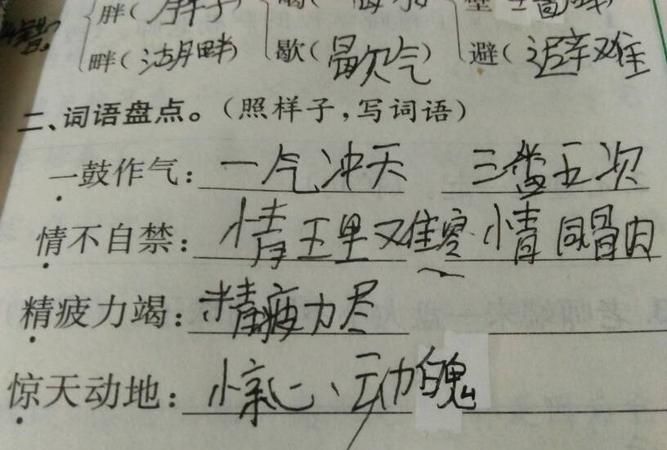 胖(胖子)
畔(湖畔) 歇(歇气) 避(避难)
二、词语盘点。(照样子,写词语)
一鼓作气: 一气冲天 三番五次
情不自禁: 情理难容 情同骨肉
精疲力竭: 精疲力尽
惊天动地: 惊心动魄